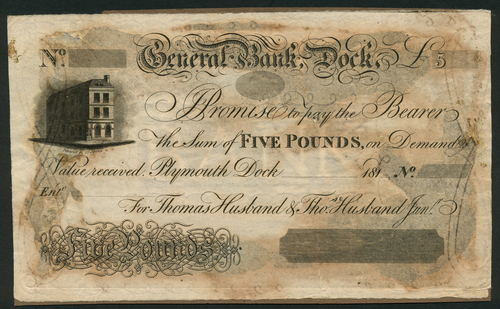 No. General Bank, Dock. £ 5
I Promise to pay the Bearer
the Sum of FIVE POUNDS, on Demand
Value received. Plymouth Dock 181 No.
Ent.d
For Thomas Husband & Tho.s Husband Jun.r
Five Pounds